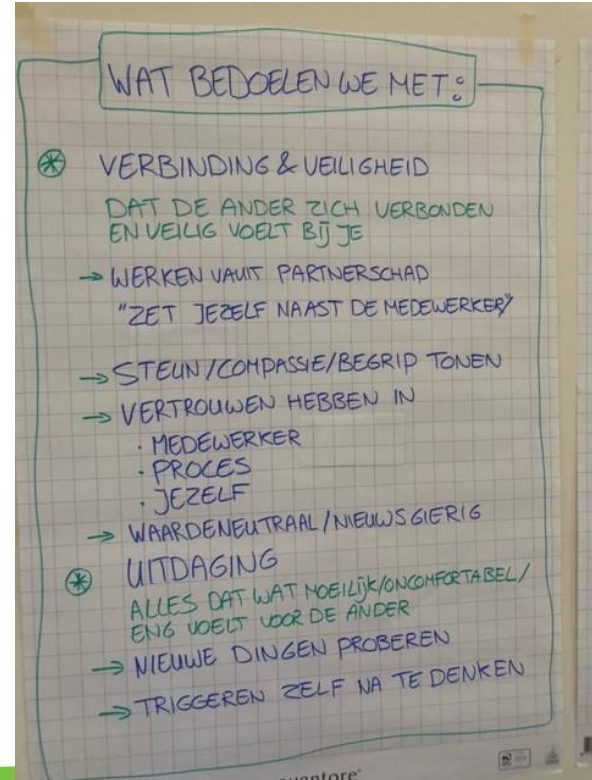 WAT BEDOELEN WE MET:
VERBINDING & VEILIGHEID
DAT DE ANDER ZICH VERBONDEN
EN VEILIG VOELT BIJ JE
→ WERKEN VAUIT PARTNERSCHAD
"ZET JEZELF NAAST DE MEDEWERKER"
→ STEUN/COMPASSIE/BEGRIP TONEN
→ VERTROUWEN HEBBEN IN
· MEDEWERKER
· PROCES
· JEZELF
→ WAARDENEUTRAAL/NIEUWSGIERIG
UITDAGING
ALLES DAT WAT MOEILIJK/ONCOMFORTABEL/
ENG VOELT VOOR DE ANDER
→ NIEUWE DINGEN PROBEREN
→ TRIGGEREN ZELF NA TE DENKEN